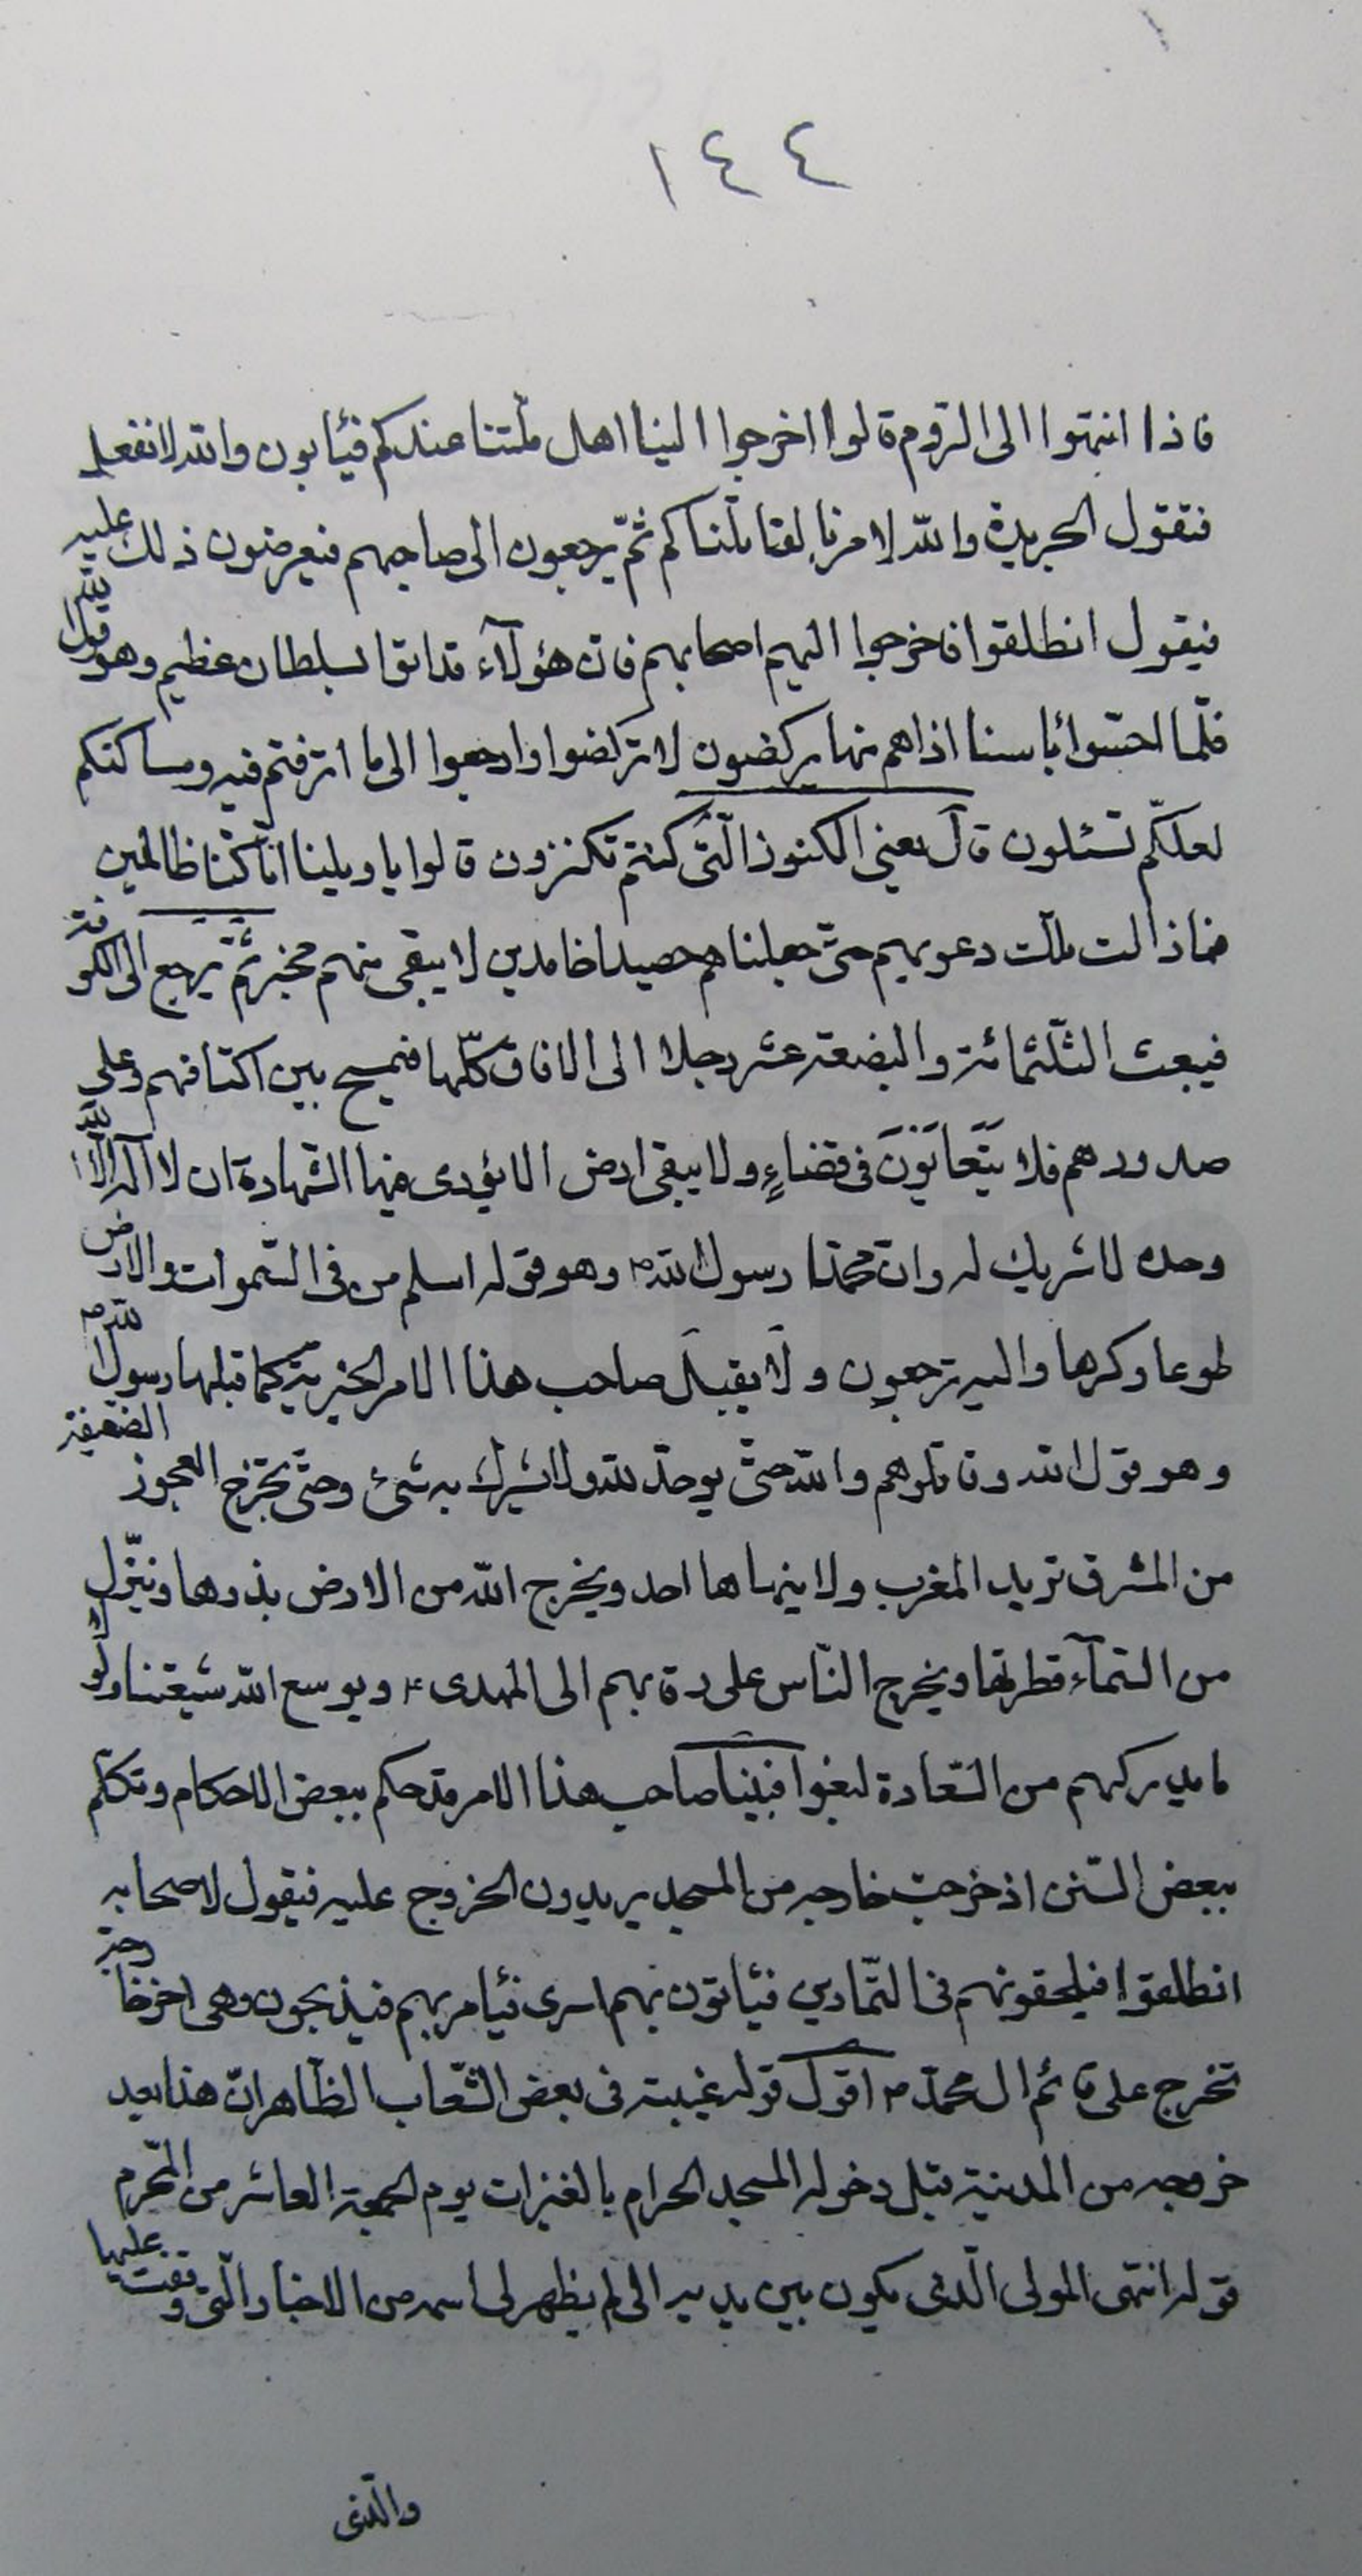 ١٤٤
فاذا انتهوا الى الروم قالوا اخرجوا الينا اهل ملّتنا عندكم فيأبون والله لا نفعل
فتقول الجريدة والله لامرنا لقاتلناكم ثمّ يرجعون الى صاحبهم فيعرضون ذلك عليه
فيقول انطلقوا فاخرجوا اليهم اصحابهم فان هؤلآء قد اتوا بسلطان عظيم وهو قول الله
فلّما احسّوا بأسنا اذا هم منها يركضون لا تركضوا وارجعوا الى ما اترفتم فيه ومساكنكم
لعلكّم تسئلون قال يعنى الكنوز الّتى كنتم تكنزون قالوا يا ويلينا انّا كنّا ظالمين
فما زالت تلك دعويهم حتّى جعلناهم حصيدا خامدين لا يبقى منهم مخبر ثمّ يرجع الى الكوفة
فيبعث الثلّثمائة والبضعة عشر رجلا الى الافاق كلّها فيمسح بين اكتافهم وعلى
صدورهم فلا يَتَعايَوْنَ فى قضاءٍ ولا يبقى ارض الا يؤدى فيها الشهادة ان لا اله الّا الله
وحده لا شريك له وانّ محمّدا رسول الله ص وهو قوله اسلم من فى السّموات والارض
طوعا وكرها واليه ترجعون ولا يقبل صاحب هذا الامر الجزية كما قبلها رسول الله ص
وهو قول الله وقاتلوهم والله حتّى يوحد الله ولا يشرك به شئ وحتّى يخرج العجوز الضعيفة
من المشرق تريد المغرب ولا ينهاها احد ويخرج الله من الارض بذرها وينزّل
من السّمآء قطرتها ويخرج النّاس على رقابهم الى المهدى ع ويوسع الله شيعتنا ولولا
ما يدركهم من السّعادة لبغوا فبينا صاحب هذا الامر قد حكم ببعض الاحكام وتكلّم
ببعض السّنن اذ خرجت خارجه من المسجد يريدون الخروج عليه فيقول لاصحابه
انطلقوا فيلحقونهم فى التّمارين فيأتون بهم اسرى فيأمر بهم فيذبحون وهى اخر خارجة
تخرج على قائم ال محمّد ص اقول قوله غيبته فى بعض الشّعاب الظّاهر انّ هذا بعد
خروجه من المدينة قبل دخوله المسجد الحرام بالعنيزات يوم الجمعة العاشر من المحّرم
قوله انتهى المولى الّذى يكون بين يديه الى لم يظهر لى اسمه من الاخبار الّتى وقفت عليها
والّذى